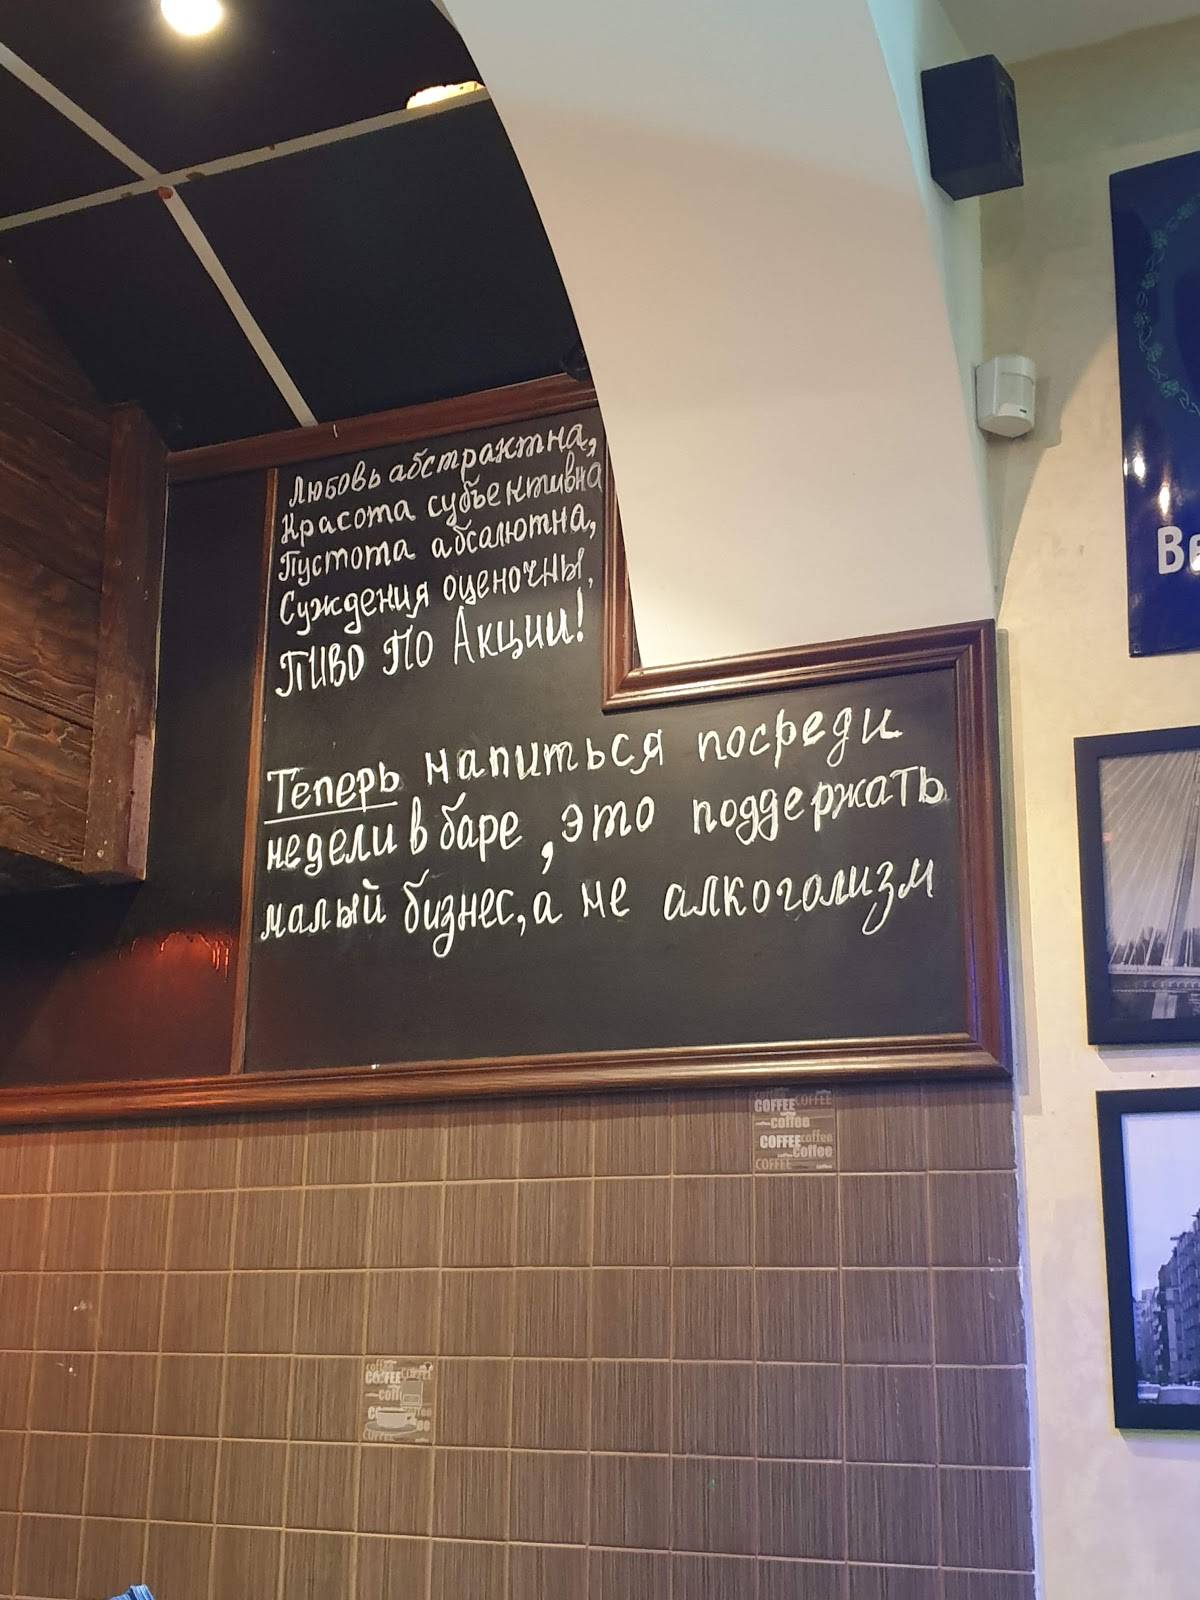 Любовь абстрактна,
Красота субъективна
Пустота абсалютна,
Суждения оценочны,
ПИВО ПО Акции!
Теперь напиться посреди
недели в баре, это поддержать
малый бизнес, а не алкоголизм
COFFEE COFFEE
coffee
COFFEE coffee
Coffee
COFFEE